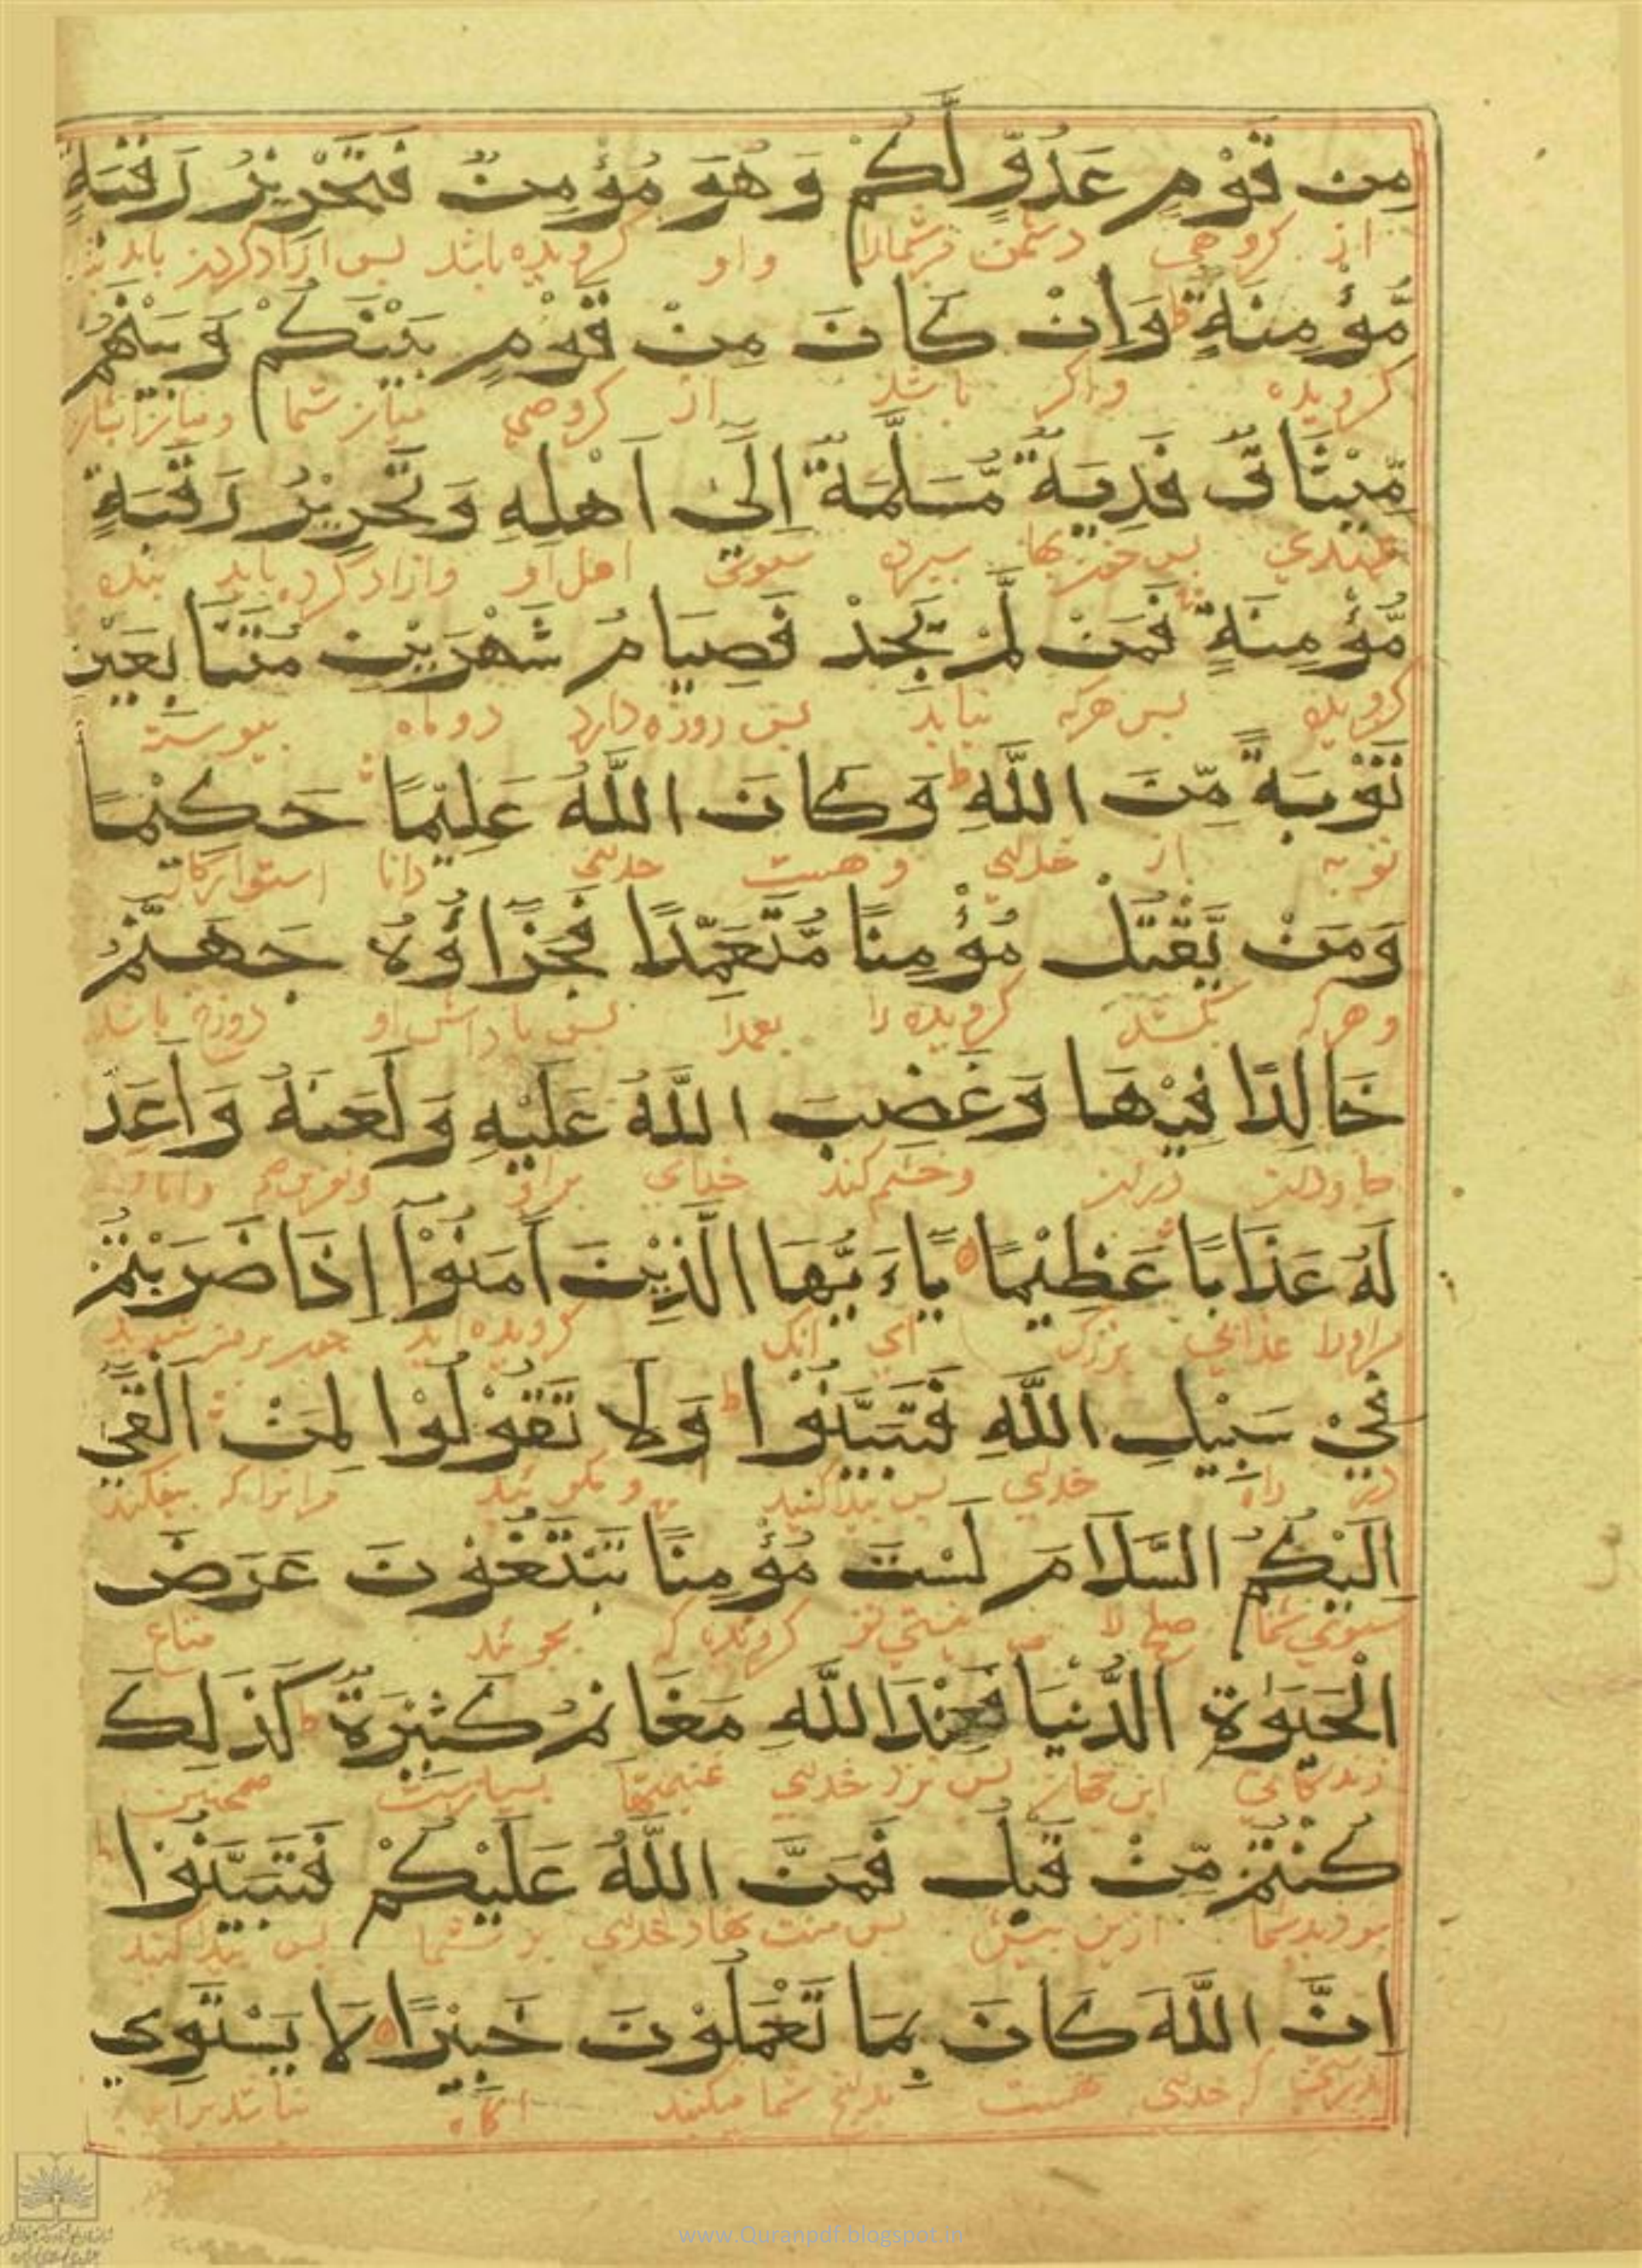 مِن قَوْمٍ عَدُوٍّ لَّكُمْ وَهُوَ مُؤْمِنٌ فَتَحْرِيْرُ رَقَبَةٍ
از گروهی دشمن مرشمارا واو گرویده باشد پس ازاد کردن باید
مُّؤْمِنَةٍ ط وَاِنْ كَانَ مِنْ قَوْمٍ بَيْنَكُمْ وَبَيْنَهُمْ
گرویده واگر باشد از گروهی میان شما ومیان ایشان
مِّيْثَاقٌ فَدِيَةٌ مُّسَلَّمَةٌ اِلَىٰ اَهْلِهِ وَتَحْرِيْرُ رَقَبَةٍ
پس خون بها سپرده سوی اهل او وازاد کردن باید بنده
مُّؤْمِنَةٍ فَمَنْ لَّمْ يَجِدْ فَصِيَامُ شَهْرَيْنِ مُتَتَابِعَيْنِ
گرویده پس هرکه نیابد پس روزه دارد دو ماه پیوسته
تَوْبَةً مِّنَ اللَّهِ ط وَكَانَ اللَّهُ عَلِيْمًا حَكِيْمًا
توبه از خدای وهست خدای دانا استوارکار
وَمَنْ يَّقْتُلْ مُؤْمِنًا مُّتَعَمِّدًا فَجَزَاؤُهُ جَهَنَّمُ
وهرکه بکشد گرویده را بعمدا پس پاداش او دوزخ باشد
خَالِدًا فِيْهَا وَغَضِبَ اللَّهُ عَلَيْهِ وَلَعَنَهُ وَاَعَدَّ
جاودان دران وخشم کند خدای براو
لَهُ عَذَابًا عَظِيْمًا يَاءَيُّهَا الَّذِيْنَ اٰمَنُوْا اِذَا ضَرَبْتُمْ
مراورا عذابی بزرگ ای انک گرویده اید
فِيْ سَبِيْلِ اللَّهِ فَتَبَيَّنُوْا ط وَلَا تَقُوْلُوْا لِمَنْ اَلْقَىٰ
در راه خدای پس پیدا کنید ومگوئید مرانرا که
اِلَيْكُمُ السَّلَامَ لَسْتَ مُؤْمِنًا تَبْتَغُوْنَ عَرَضَ
سوی شما صلح را نیستی تو گرونده که بجوئید متاع
الْحَيَوٰةِ الدُّنْيَا فَعِنْدَ اللَّهِ مَغَانِمُ كَثِيْرَةٌ ط كَذَٰلِكَ
زندگانی این جهان پس نزد خدای غنیمتها بسیارست همچنین
كُنْتُمْ مِّنْ قَبْلُ فَمَنَّ اللَّهُ عَلَيْكُمْ فَتَبَيَّنُوْا ط
بودید شما ازین پیش پس منت نهاد خدای بر شما پس پیدا کنید
اِنَّ اللَّهَ كَانَ بِمَا تَعْمَلُوْنَ خَبِيْرًا لَا يَسْتَوِي
بدرستی که خدای هست بدانچ شما میکنید اگاه
www.Quranpdf.blogspot.in